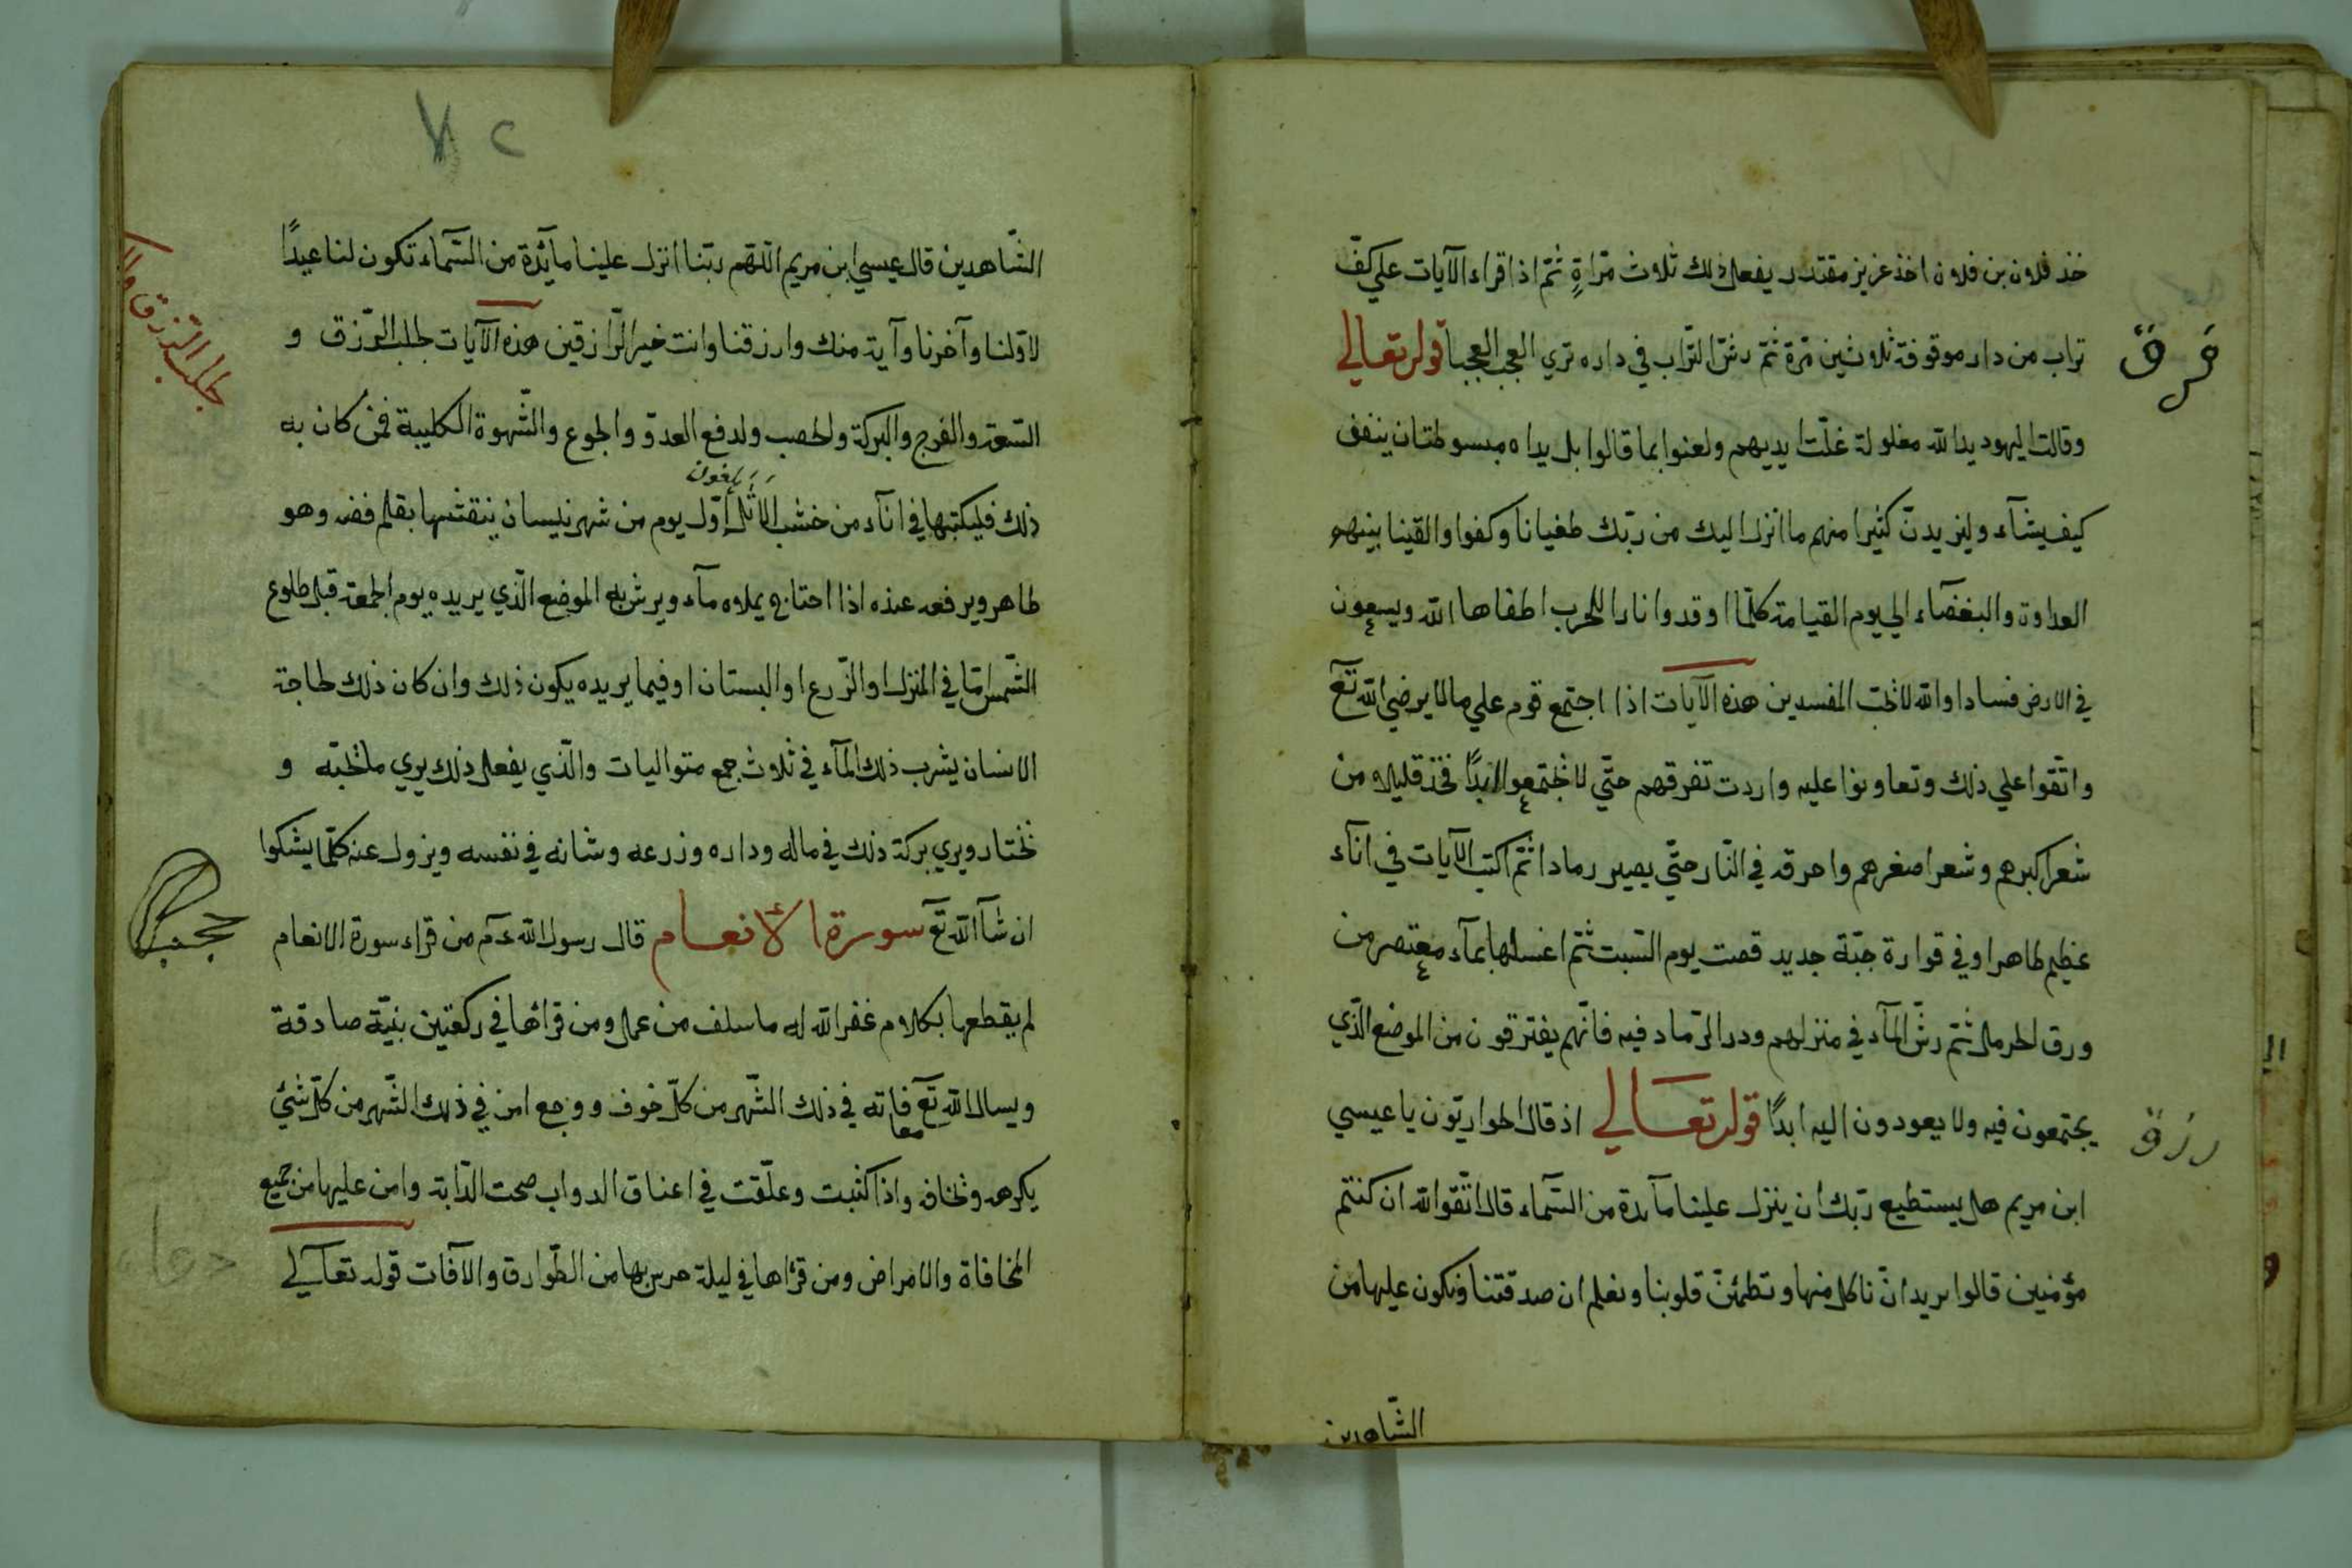 خذ فلان بن فلان اخذ عزيز مقتدر يفعل ذلك ثلاث مرّاةٍ ثمّ اذا قراء الآيات علي كفّ
تراب من دار موقوفة ثلاثين مرّة ثمّ رشّ التّراب في داره تري العجب العجبا قوله تعالي
فرق
وقالت اليهود يد الله مغلولة غلّت ايديهم ولعنوا بما قالوا بل يداه مبسوطتان ينفق
كيف يشآء وليزيدنّ كثيرا منهم ما انزل اليك من ربّك طغيانا وكفوا والقينا بينهم
العداوة والبغضآء الي يوم القيامة كلّما اوقدوا نارا للحرب اطفاها الله ويسعون
في الارض فسادا والله لا يحبّ المفسدين هذه الآيات اذا اجتمع قوم علي ما لا يرضي الله تع
واتّقوا علي ذلك وتعاونوا عليه واردت تفرقهم حتّي لا يجتمعوا ابدًا فخذ قليلا من
شعر اكبرهم وشعر اصغرهم واحرقه في النّار حتّي يصير رمادا ثمّ اكتب الآيات في انآء
عظيم طاهر او في قوارة جبّة جديد قصت يوم السّبت ثمّ اغسلها بمآء معتصر من
ورق الحرمل ثمّ رشّ المآء في منزلهم ودر الرّماد فيه فانّهم يفترقون من الموضع الّذي
يجتمعون فيه ولا يعودون اليه ابدًا قوله تعالي اذ قال الحواريّون يا عيسي
رزق
ابن مريم هل يستطيع ربّك ان ينزل علينا مآئدة من السّمآء قال اتّقوا الله ان كنتم
مؤمنين قالوا نريد انّ ناكل منها وتطمئنّ قلوبنا ونعلم ان صدقتنا ونكون عليها من
الشّاهدين
٧٢
الشّاهدين قال عيسي ابن مريم اللّهم ربّنا انزل علينا مآئدة من السّمآء تكون لنا عيدًا
لاوّلنا وآخرنا وآية منك وارزقنا وانت خير الرّازقين هذه الآيات لجلب الرّزق و
جلب الرّزق
السّعة والفرج والبركة والخصب ولدفع العدوّ والجوع والشّهوة الكلبية فمن كان به
ذلك فليكتبها في انآء من خشب الاثل اوّل يوم من شهر نيسان ينقشها بقلم فضه وهو
طاهر ويرفعه عنده اذا احتاج يملاه مآء ويرش به الموضع الّذي يريده يوم الجمعة قبل طلوع
الشّمس امّا في المنزل او الزّرع او البستان او فيما يريده يكون ذلك وان كان ذلك لحاجة
الانسان يشرب ذلك المآء في ثلاث جمع متواليات والّذي يفعل ذلك يري ما يحبّه و
يختار ويري بركة ذلك في ماله وداره وزرعه وشانه في نفسه ويزول عنه كلّما يشكوا
ان شآ الله تع سورة الانعام قال رسول الله عم من قراء سورة الانعام
لم يقطعها بكلام غفر الله له ما سلف من عمل ومن قرائها في ركعتين بنيّة صادقة
ويسال الله تع معافاته في ذلك الشّهر من كلّ خوف ووجع امن في ذلك الشّهر من كلّ شئ
يكرهه ويخافه واذا كتبت وعلّقت في اعناق الدواب صحت الدّابة وامن عليها من جميع
المخافاة والامراض ومن قراها في ليلة حرس بها من الطّوارق والآفات قوله تعالي
دواء